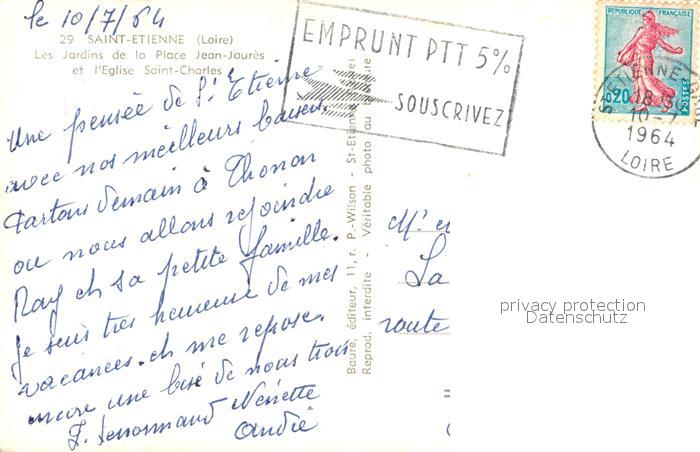 le 10/7/64
29 SAINT-ETIENNE (Loire)
Les Jardins de la Place Jean-Jaurès
et l'Eglise Saint-Charles
Une pensée de St Etienne
avec nos meilleurs baisers.
Partons demain à Thonon
ou nous allons rejoindre
Ray et sa petite famille.
Je suis très heureuse de mes
vacances et me repose.
encore une bise de nous trois
Nénette
André
EMPRUNT PTT 5%
SOUSCRIVEZ
REPUBLIQUE FRANÇAISE
0,20
POSTES
ST ETIENNE
18-
10-7
1964
LOIRE
Baure, éditeur, 11, r. P.-Wilson - St-Etienne
Reprod. interdite - Véritable photo au
Mr et
La
route
privacy protection
Datenschutz